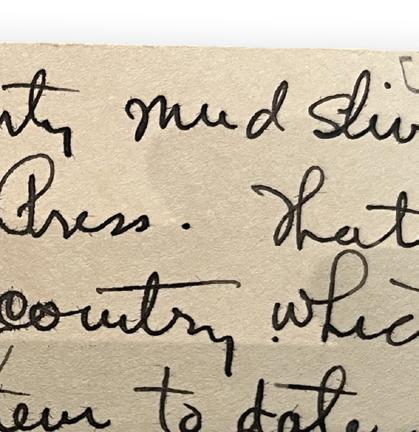 nty mud sliv
Press. That
country whic
tem to date